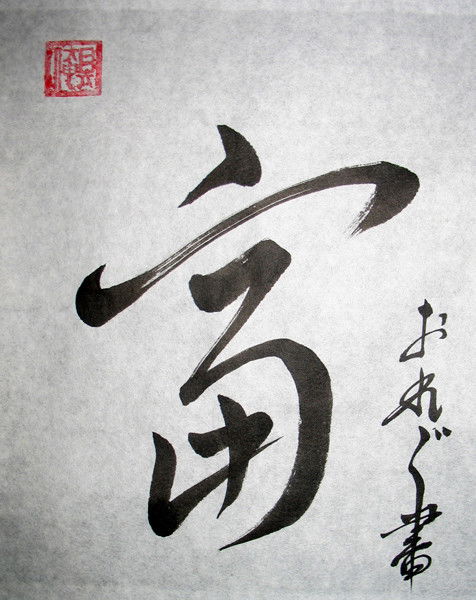 富
おれぐ書